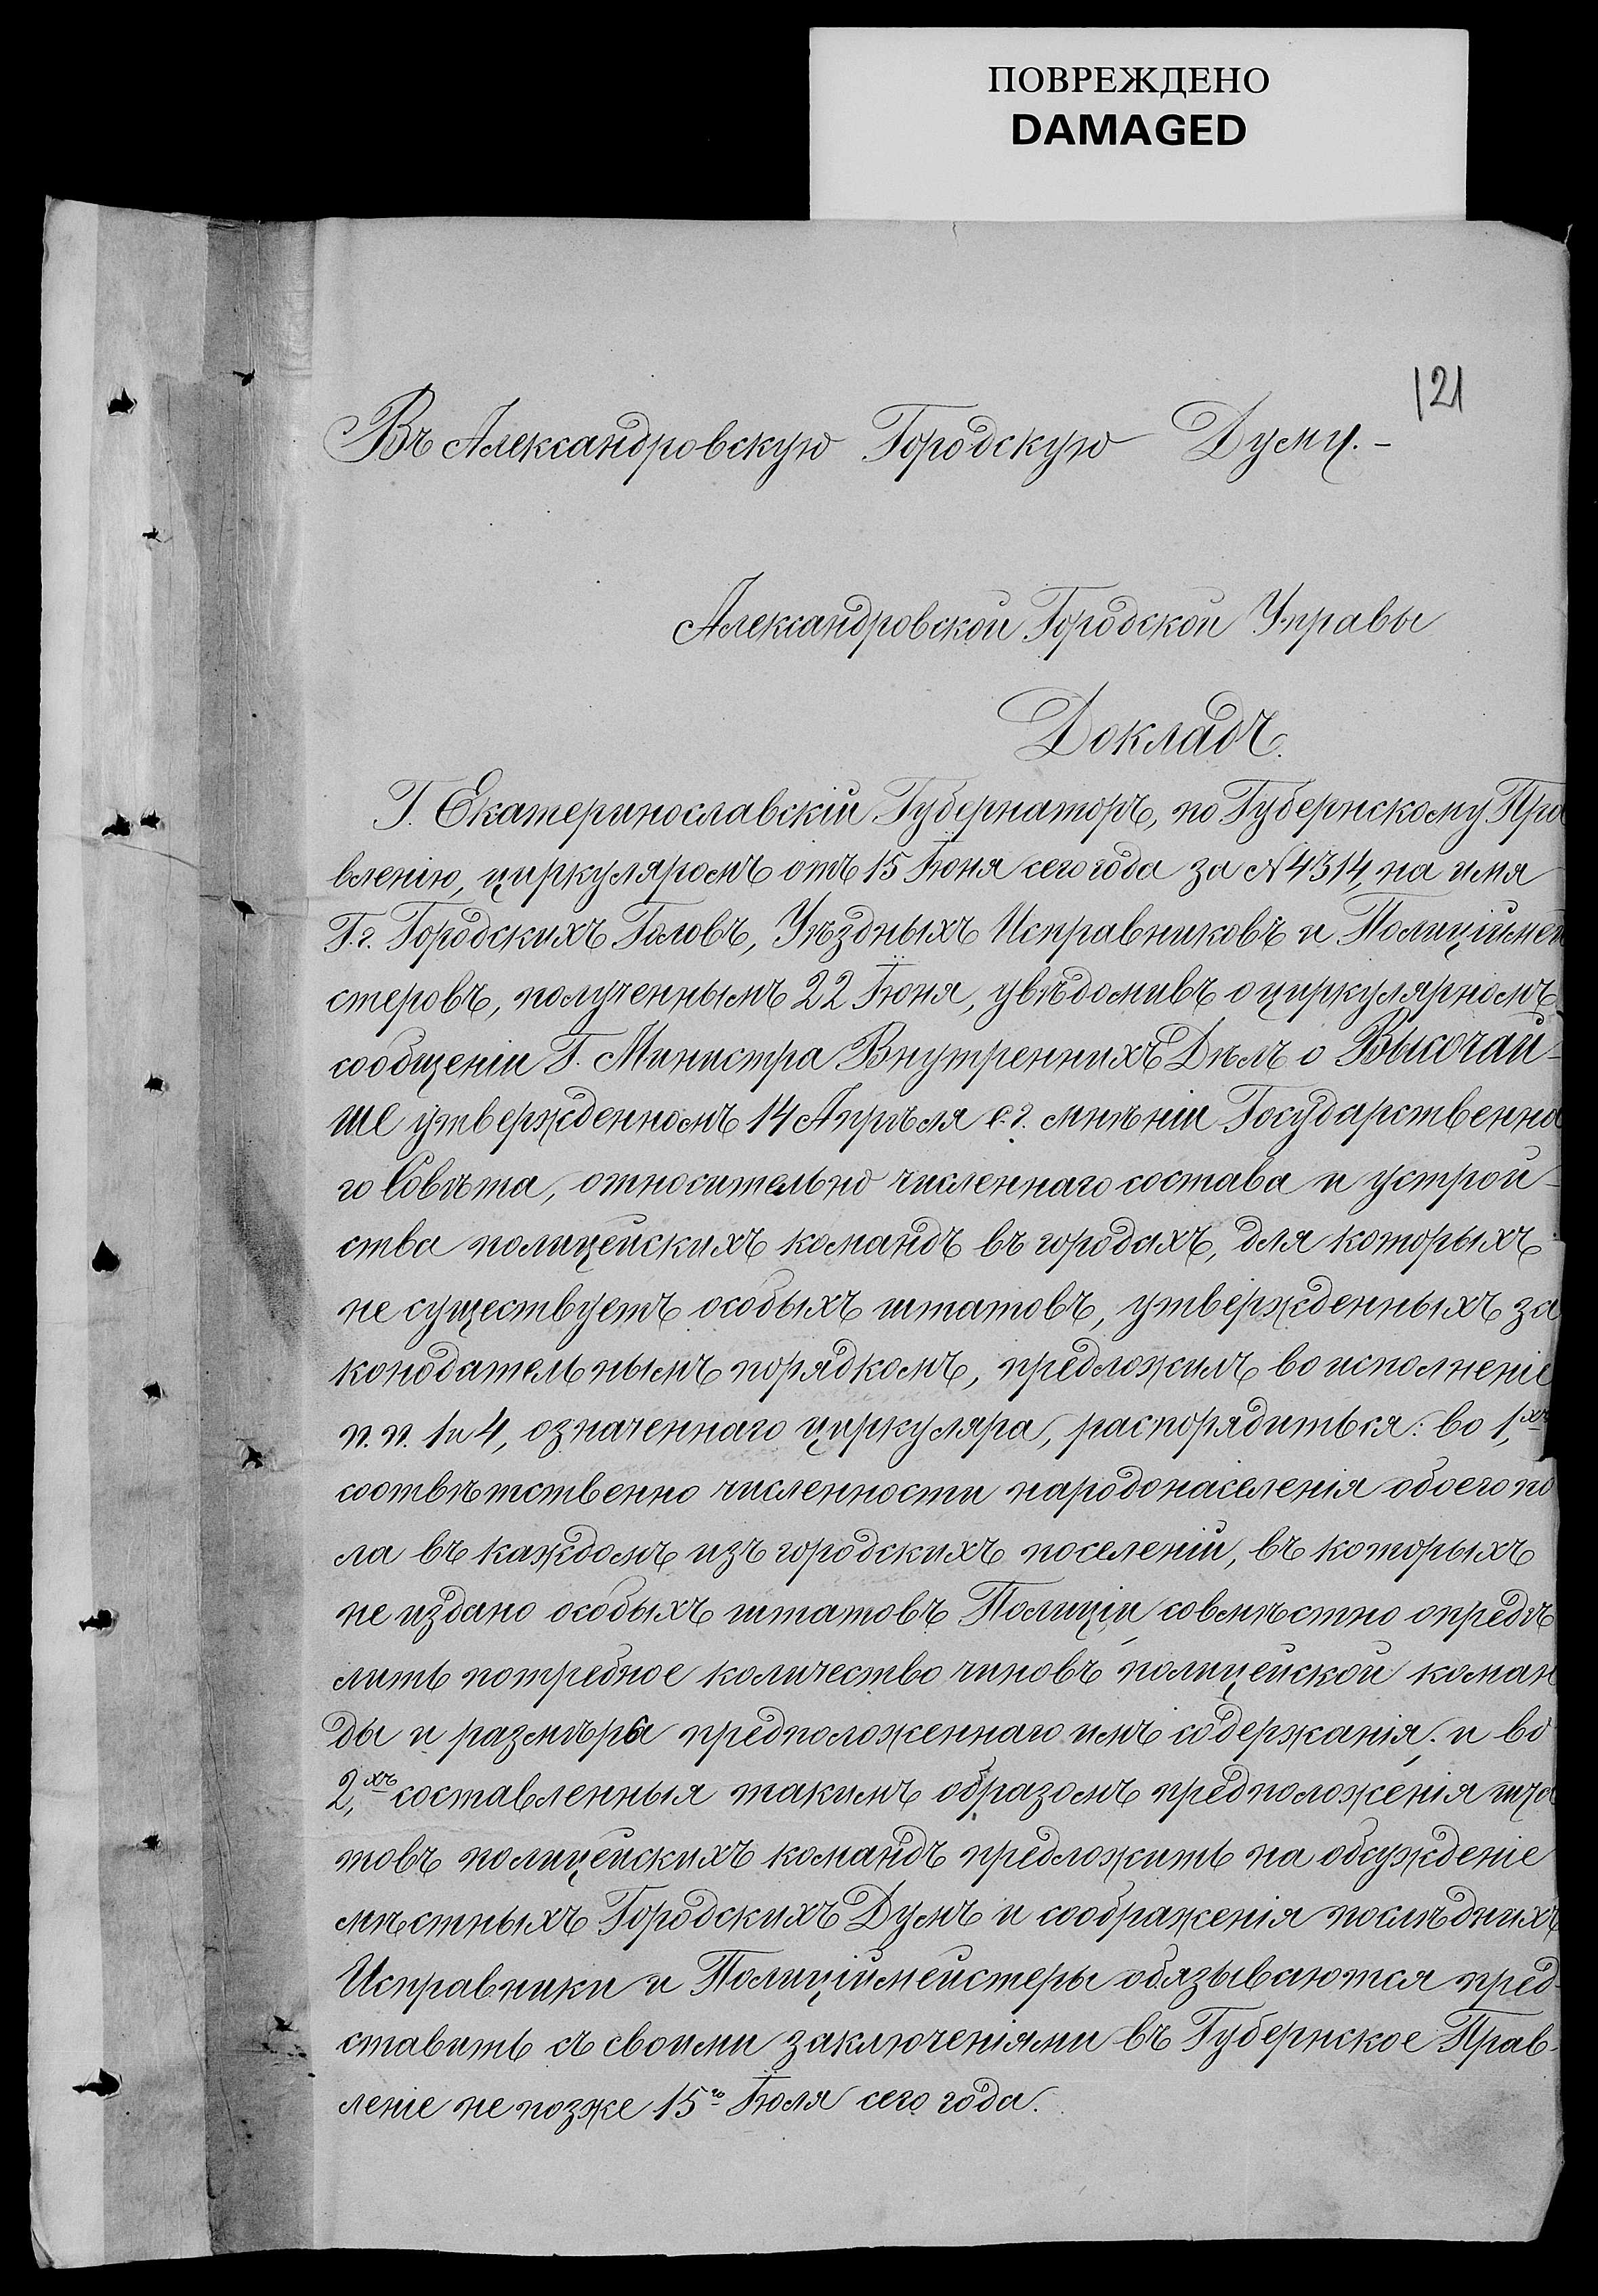 ПОВРЕЖДЕНО
DAMAGED
121
Въ Александровскую Городскую Думу.-
Александровской Городской Управы
Докладъ.
Г. Екатеринославскій Губернаторъ, по Губернскому Пра
вленію, циркуляромъ отъ 15 Іюня сего года за №4314, на имя
Г.г. Городскихъ Головъ, Уѣздныхъ Исправниковъ и Полиціймей
стеровъ, полученнымъ 22 Іюня, увѣдомивъ о циркулярномъ
сообщеніи Г. Министра Внутреннихъ Дѣлъ о Высочай-
ше утвержденномъ 14 Апрѣля с.г. мнѣніи Государственна
го Совѣта, относительно численнаго состава и устрой-
ства полицейскихъ командъ въ городахъ, для которыхъ
не существуетъ особыхъ штатовъ, утвержденныхъ за
конодательнымъ порядкомъ, предложилъ во исполненіе
п.п. 1 и 4, означеннаго циркуляра, распорядиться: во 1,хъ
соотвѣтственно численности народонаселенія обоего по
ла въ каждомъ изъ городскихъ поселеній, въ которыхъ
не издано особыхъ штатовъ Полиціи, совмѣстно опредѣ
лить потребное количество чиновъ полицейской коман
ды и размѣры предположеннаго имъ содержанія; и во
2,хъ составленныя такимъ образомъ предположенія шта
товъ полицейскихъ командъ предложить на обсужденіе
мѣстныхъ Городскихъ Думъ и соображенія послѣднихъ
Исправники и Полиціймейстеры обязываются пред-
ставить съ своими заключеніями въ Губернское Прав-
леніе не позже 15го Іюля сего года.